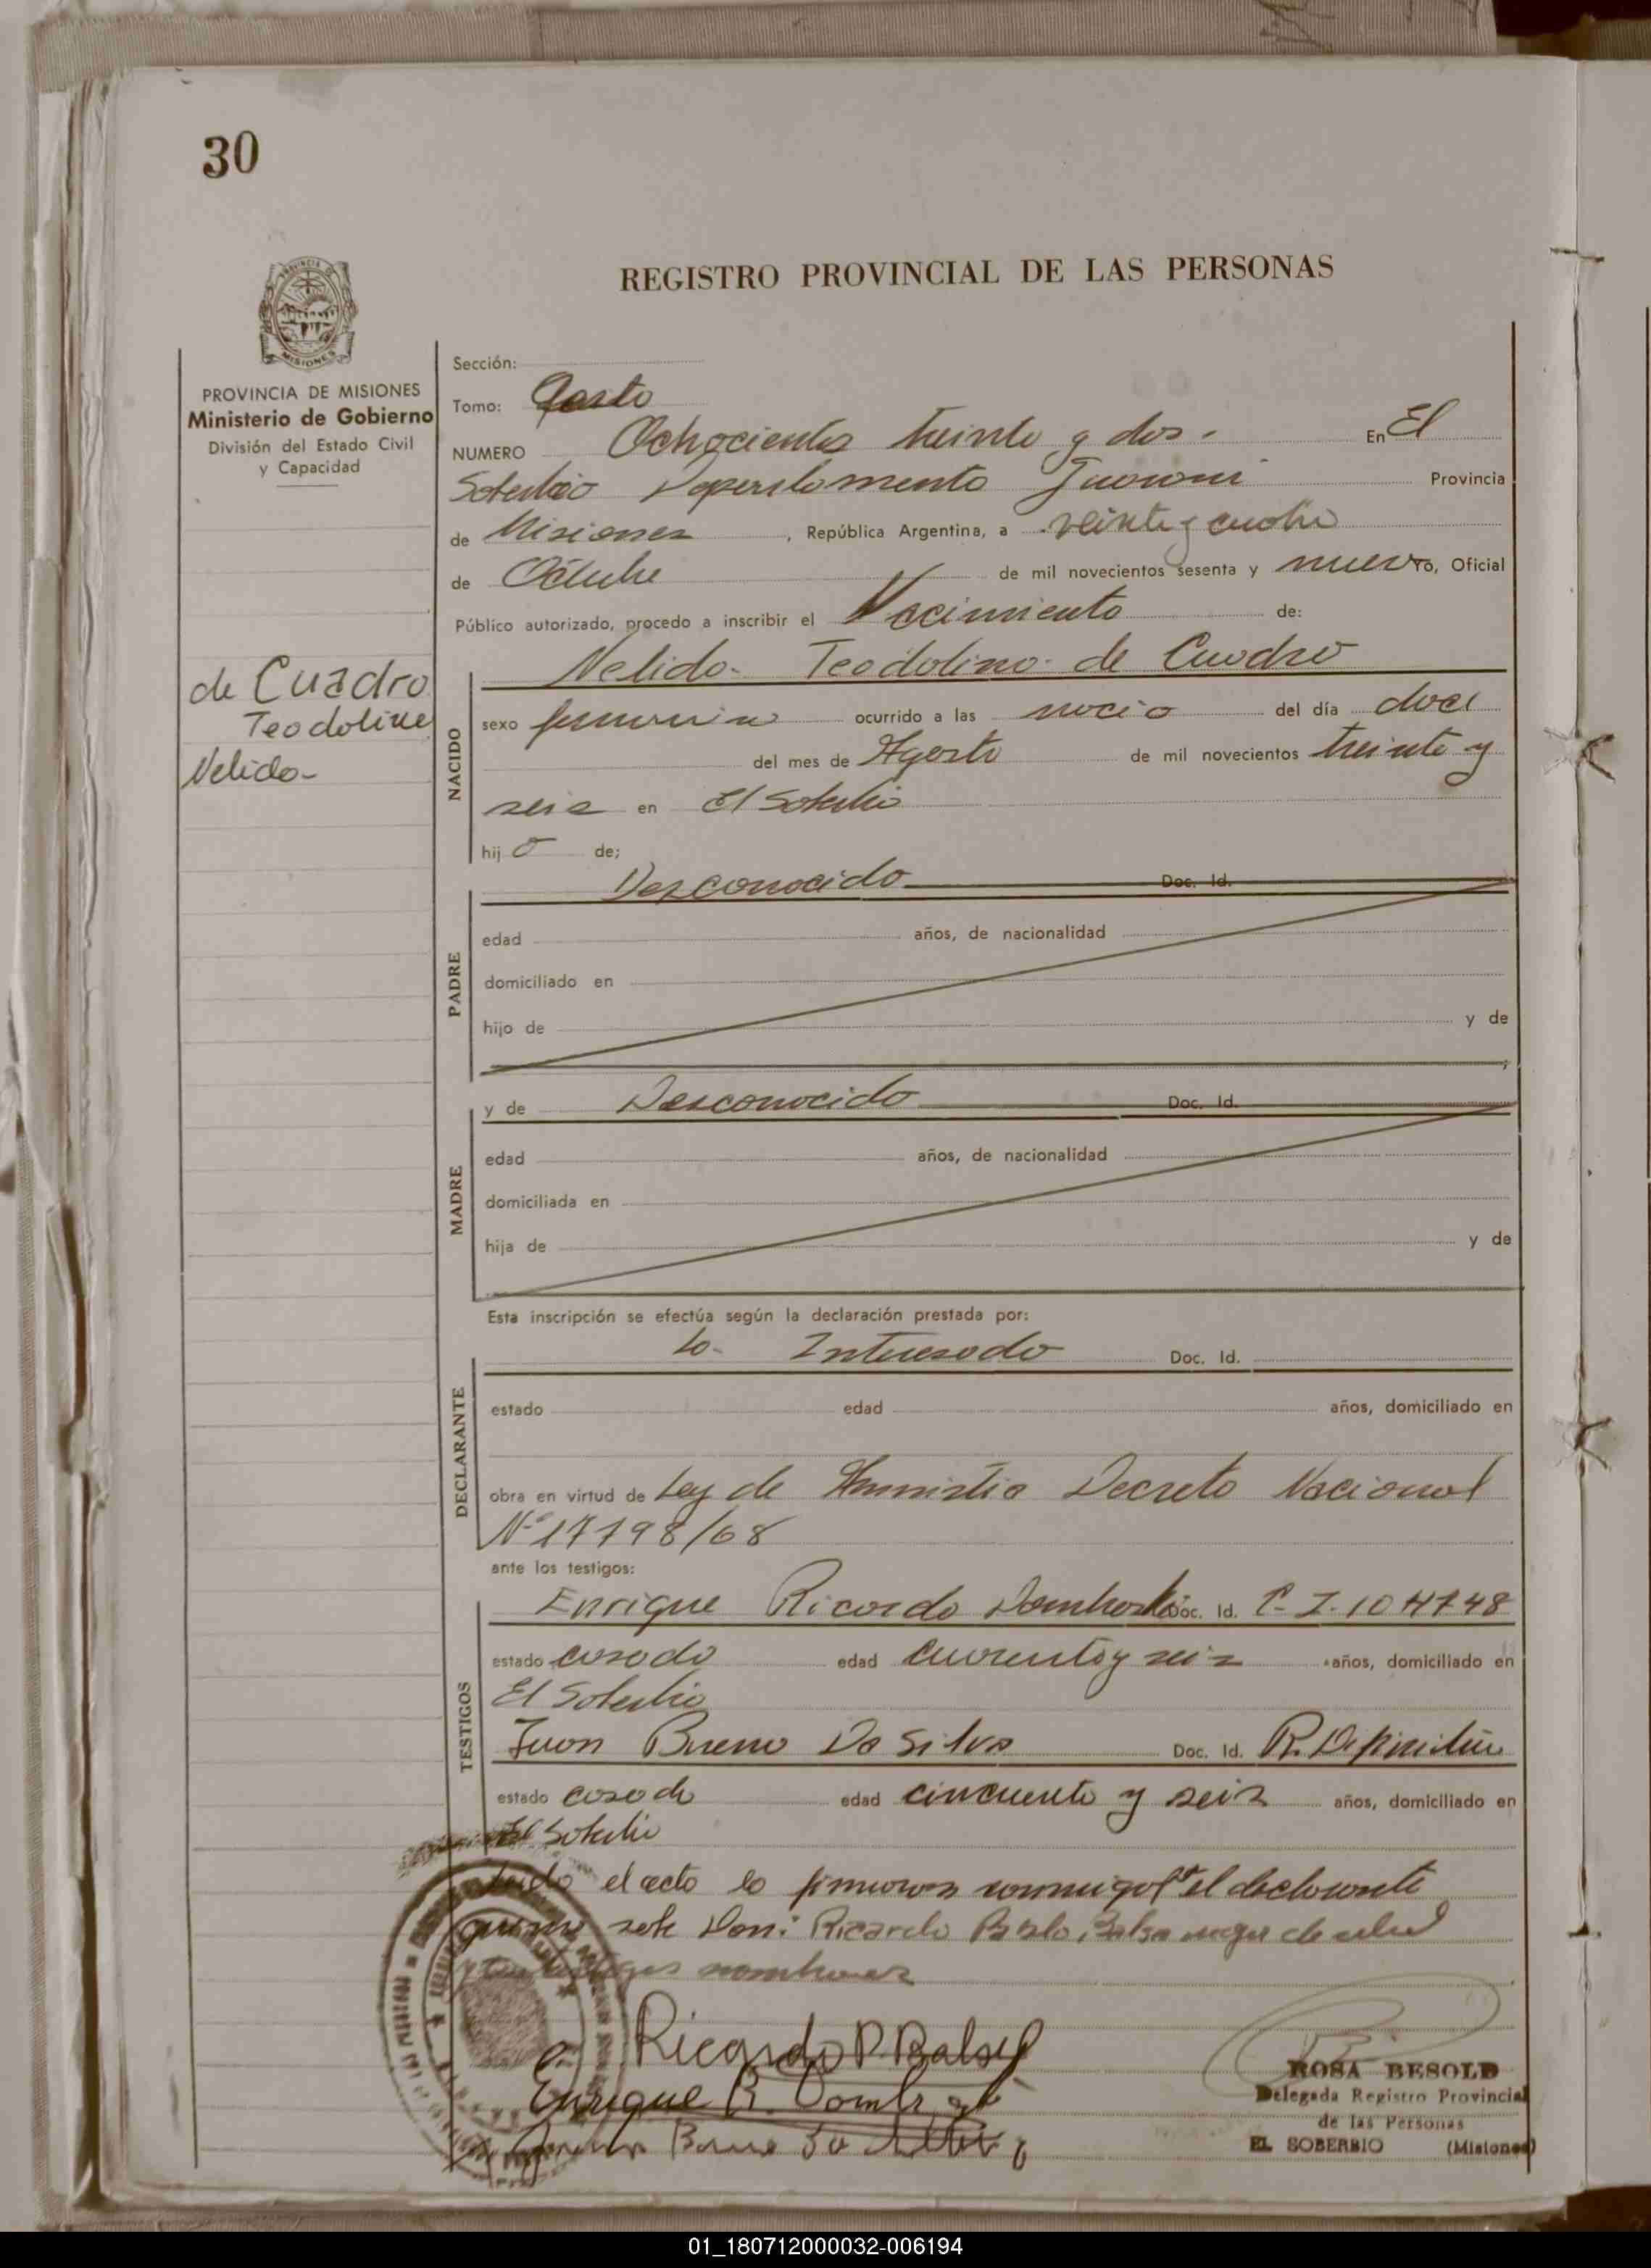 30
REGISTRO PROVINCIAL DE LAS PERSONAS
MISIONES
PROVINCIA DE MISIONES
Ministerio de Gobierno
División del Estado Civil
y Capacidad
de Cuadro
Teodolina
Nelida-
Sección:
Tomo:
NUMERO Ochocientos treinta y dos. En El
Soberbio Departamento Guarani Provincia
de Misiones, República Argentina, a veinte y cuatro
de Octubre de mil novecientos sesenta y nueve, Oficial
Público autorizado, procedo a inscribir el Nacimiento de:
NACIDO
Nelida- Teodolina- de Cuadro
sexo femenino ocurrido a las del día doce
del mes de Agosto de mil novecientos treinta y
seis en El Soberbio
hija de;
PADRE
Desconocido Doc. Id.
edad años, de nacionalidad
domiciliado en
hijo de y de
;
MADRE
y de Desconocido Doc. Id.
edad años, de nacionalidad
domiciliada en
hija de y de
Esta inscripción se efectúa según la declaración prestada por:
DECLARANTE
La- Interesada Doc. Id.
estado edad años, domiciliado en
obra en virtud de Ley de Amnistia Decreto Nacional
Nº 17798/68
ante los testigos:
TESTIGOS
Enrique Ricardo Doc. Id. C. I.
estado casado edad cuarenta y seis años, domiciliado en
El Soberbio
Juan Bueno Da Silva Doc. Id. R.
estado casado edad cincuenta y seis años, domiciliado en
El Soberbio
Leido el acta la firmaron conmigo el declarante
Don: Ricardo Balsa mayor de edad
Ricardo P. Balsa
Enrique R.
ROSA BESOLD
Delegada Registro Provincial
de las Personas
EL SOBERBIO (Misiones)
01_180712000032-006194